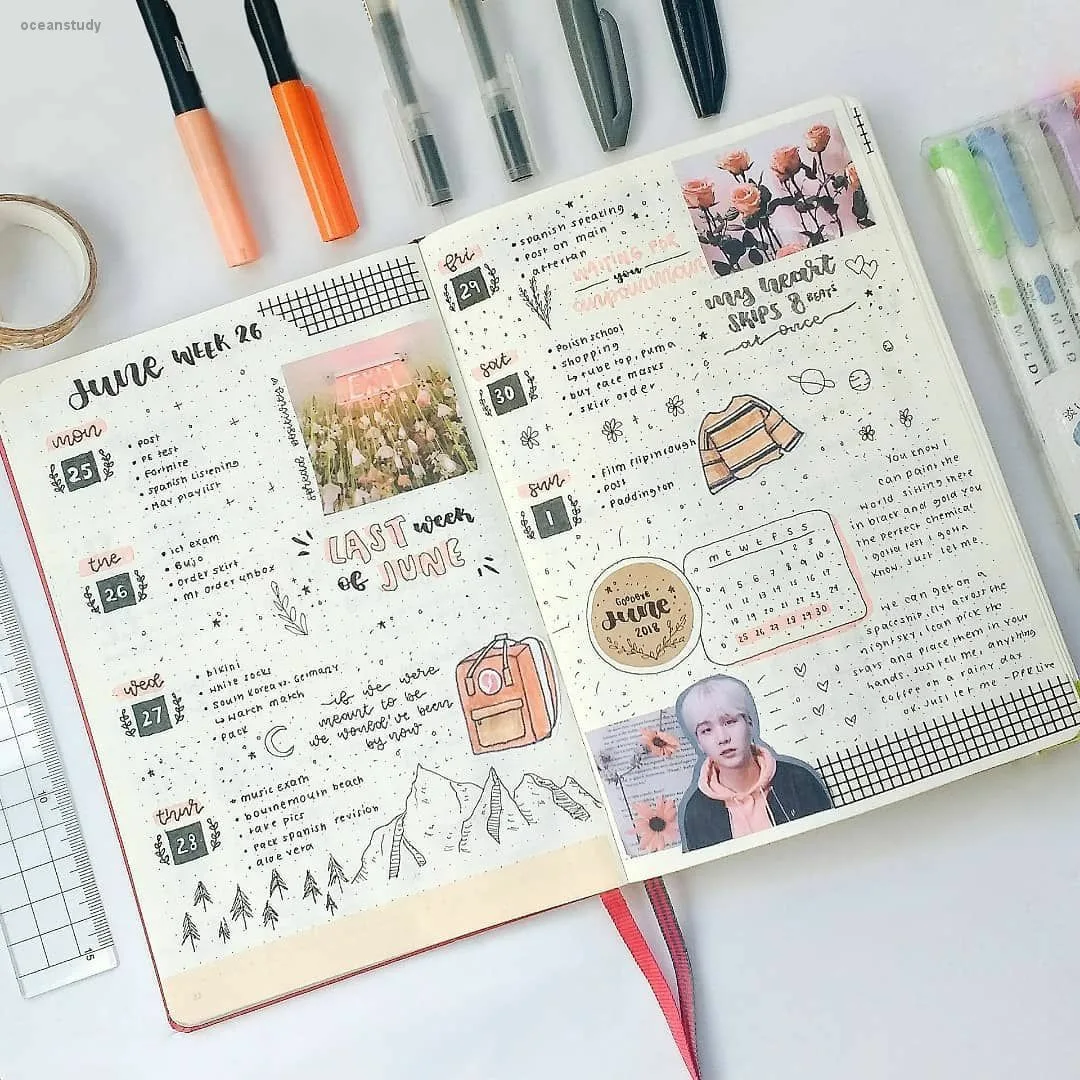 oceanstudy
JUNE WEEK 26
mon
25
• post
• PE test
• Fortnite
• spanish listening
• May playlist
spread positivity
EXIT
tue
26
• ict exam
• Bujo
• order skirt
• MT order unbox
LAST week
of JUNE
wed
27
• bikini
• white socks
• south Korea vs. Germany
↳ watch match
• pack
if we were
meant to be
we would've been
by now
thur
28
• music exam
• bournemouth beach
• take pics
• pack spanish revision
• aloe vera
fri
29
• spanish speaking
• post on main
• afterfan
WAITING FOR
you
ANPANMAN
my heart
SKIPS 8 BEATS
at once
sat
30
• polish school
• shopping
↳ tube top, puma
• buy face masks
• skirt order
sun
1
• Film flipthrough
• post
• Paddington
GOODBYE
June
2018
m t w t f s s
1 2 3
4 5 6 7 8 9 10
11 12 13 14 15 16 17
18 19 20 21 22 23 24
25 26 27 28 29 30
You know I
can paint the
world sitting there
in black and gold you
the perfect chemical
I gotta let I gotta
know, just let me.
We can get on a
spaceship, fly across the
night sky, I can pick the
stars and place them in your
hands. Just tell me, anything
coffee on a rainy day
ok. Just let me - DPR Live
MILD
MILD
MILD
10
15